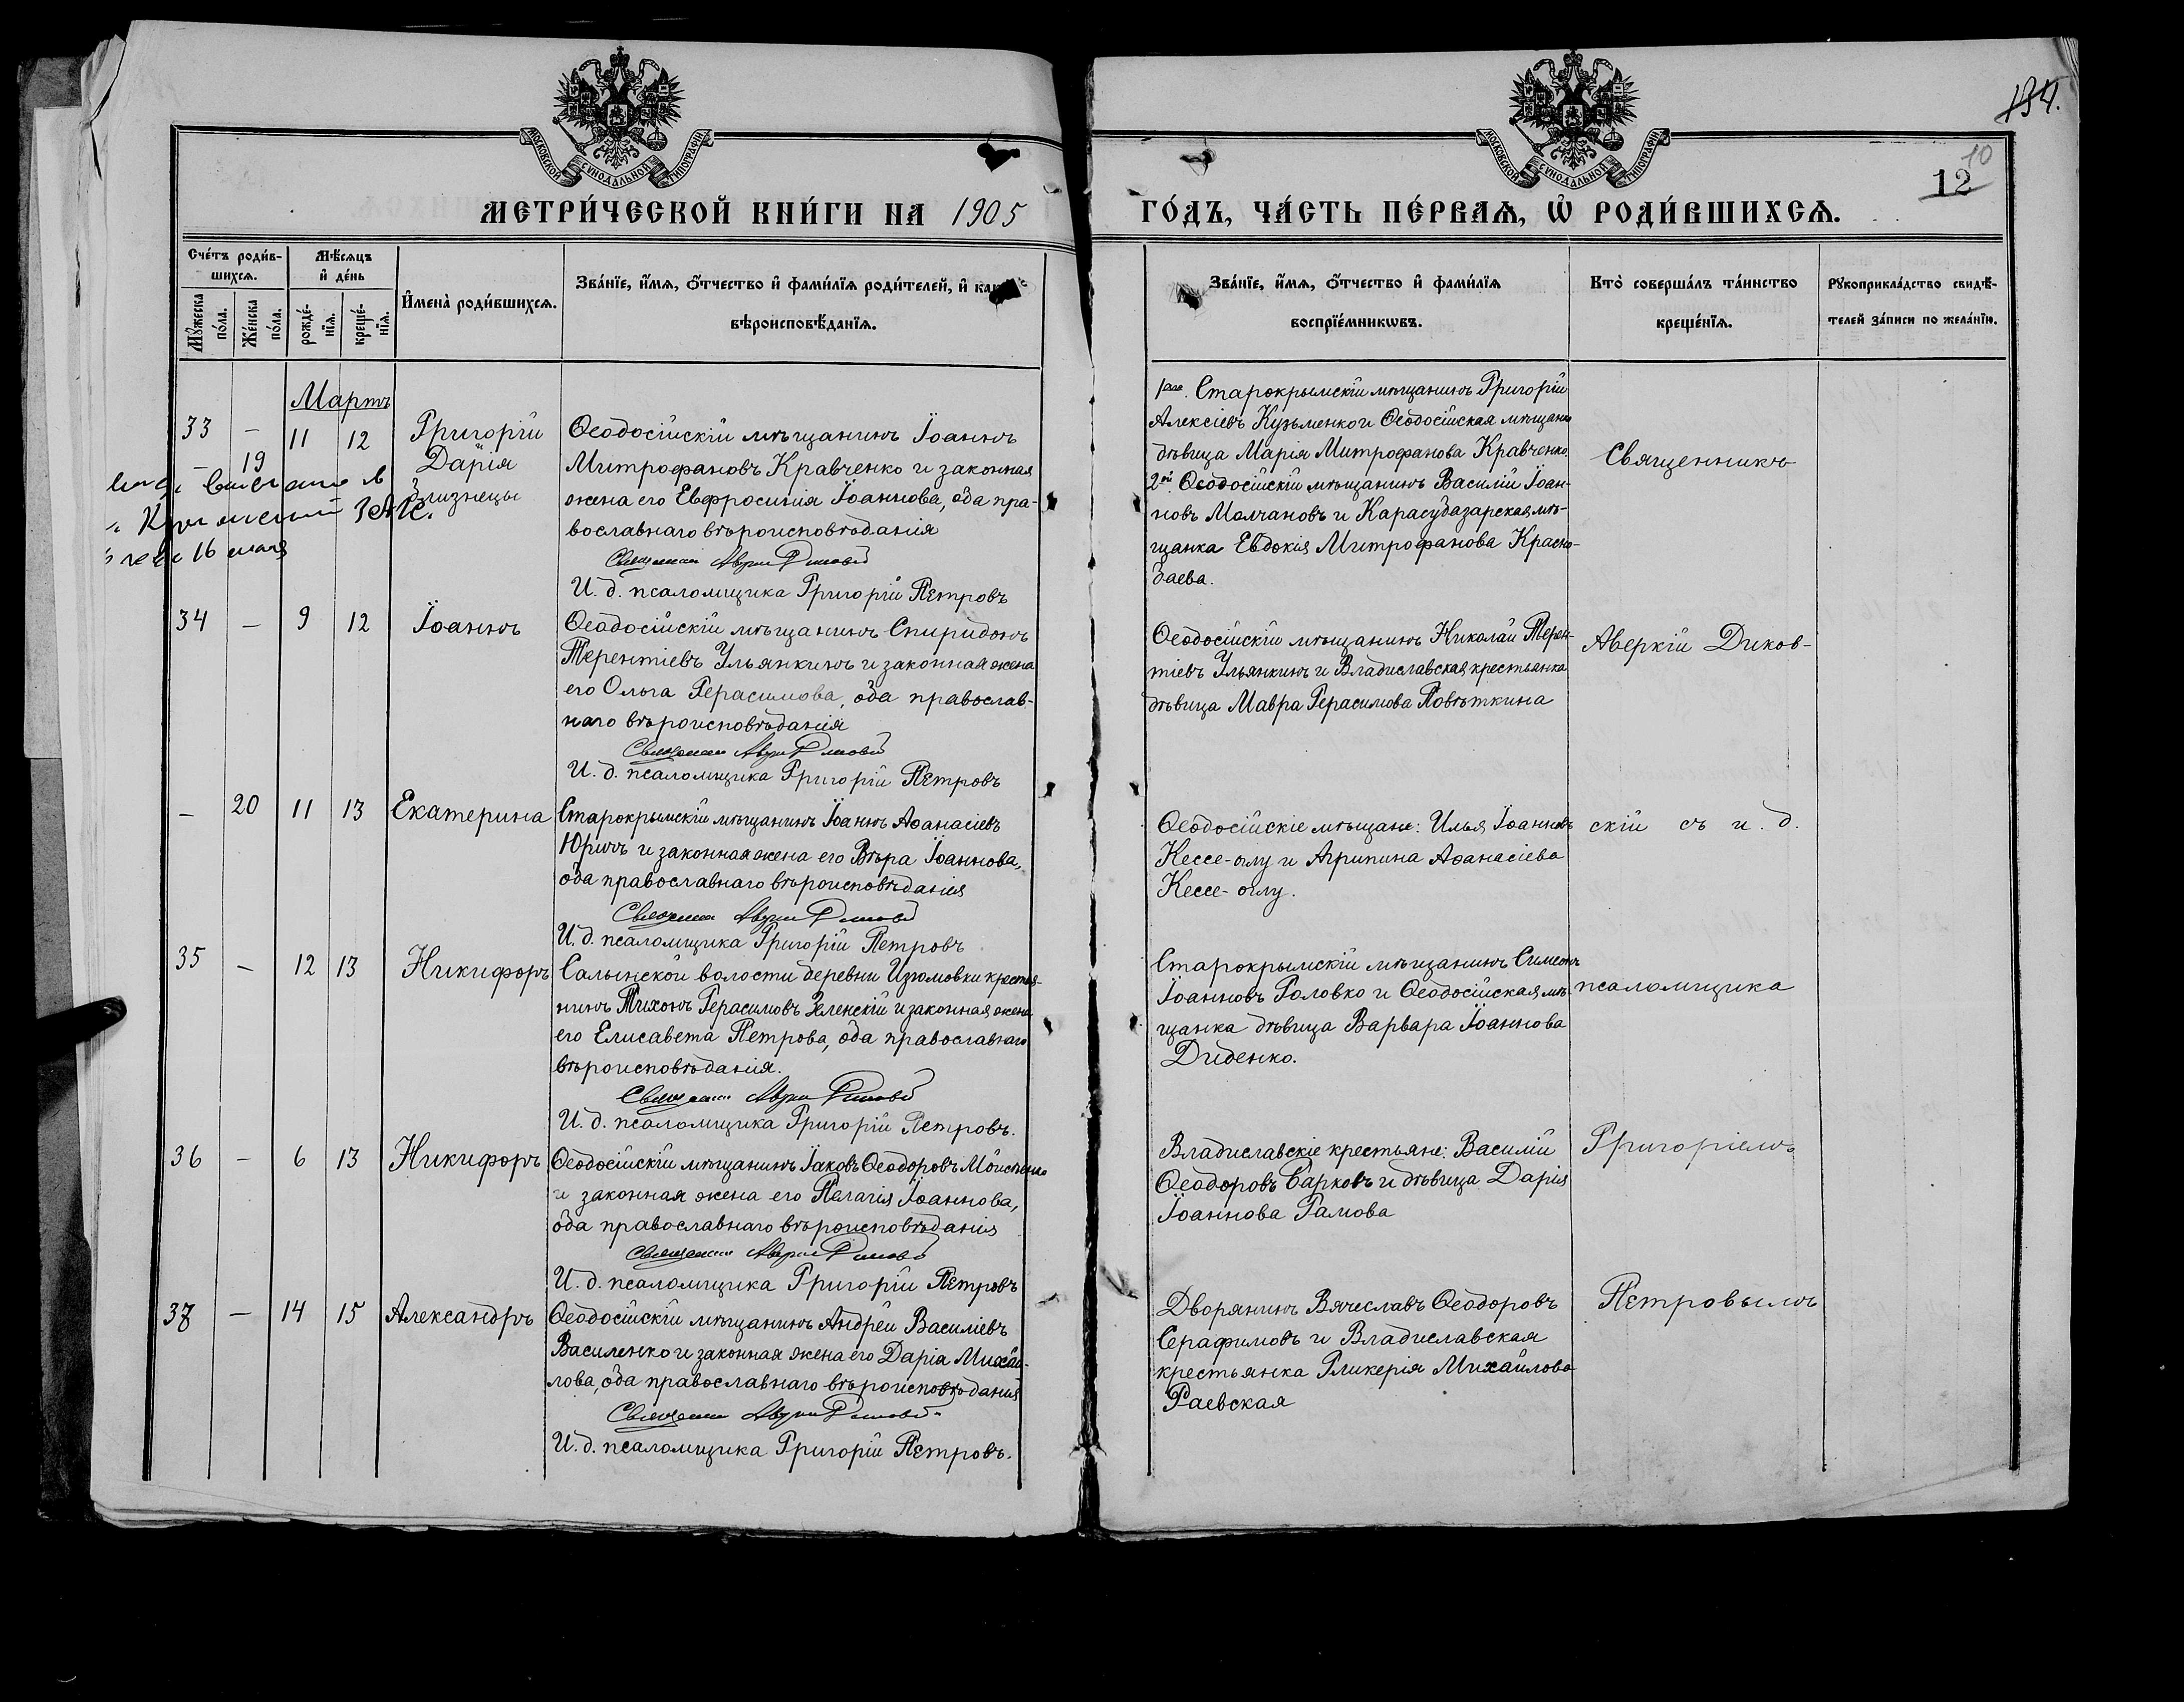 134.
10
12
МОСКОВСКОЙ СѴНОДАЛЬНОЙ ТИПОГРАФІИ
МОСКОВСКОЙ СѴНОДАЛЬНОЙ ТИПОГРАФІИ
МЕТРИ́ЧЕСКОЙ КНИ́ГИ НА 1905
ГО́ДЪ, ЧА́СТЬ ПЕ́РВАѦ, Ѡ҆ РОДИ́ВШИХСѦ.
Сче́тъ роди́в-
шихсѧ.
Мꙋжеска по́ла.
Же́нска по́ла.
Мѣ́сѧцъ
и҆ де́нь
рожде́-
нїѧ.
креще́-
нїѧ.
И҆мена̀ роди́вшихсѧ.
Зва́нїе, и҆́мѧ, ѻ҆́тчество и҆ фами́лїѧ роди́телей, и҆
вѣроисповѣ́данїѧ.
Зва́нїе, и҆́мѧ, ѻ҆́тчество и҆ фами́лїѧ
воспрїе́мникѡвъ.
Кто̀ соверша́лъ та́инство
креще́нїѧ.
Рꙋкоприкла́дство свидѣ́-
телей за́писи по жела́нїю.
Мартъ
33 — 11 12 Григорій
— 19 Дарія
близнецы
16 мая
Ѳеодосійскій мѣщанинъ Іоаннъ
Митрофановъ Кравченко и законная
жена его Евфросинія Іоаннова, оба пра-
вославнаго вѣроисповѣданія
Священникъ
И. д. псаломщика Григорій Петровъ
1ая. Старокрымскій мѣщанинъ Григорій
Алексіевъ Кузьменко и Ѳеодосійская мѣщанка
дѣвица Марія Митрофанова Кравченко.
2ой. Ѳеодосійскій мѣщанинъ Василій Іоан-
новъ Молчановъ и Карасубазарская мѣ-
щанка Евдокія Митрофанова Красно-
баева.
Священникъ
34 — 9 12 Іоаннъ
Ѳеодосійскій мѣщанинъ Спиридонъ
Терентіевъ Ульянкинъ и законная жена
его Ольга Герасимова, оба православ-
наго вѣроисповѣданія
Священникъ
И. д. псаломщика Григорій Петровъ
Ѳеодосійскій мѣщанинъ Николай Терен-
тіевъ Ульянкинъ и Владиславская крестьянка
дѣвица Мавра Герасимова Повѣткина
Аверкій Диков-
— 20 11 13 Екатерина
Старокрымскій мѣщанинъ Іоаннъ Аѳанасіевъ
и законная жена его Вѣра Іоаннова,
оба православнаго вѣроисповѣданія
Священникъ
И. д. псаломщика Григорій Петровъ
Ѳеодосійскіе мѣщане: Илья Іоанновъ
Кессе-оглу и Агрипина Аѳанасіева
Кессе-оглу.
скій съ и. д.
35 — 12 13 Никифоръ
Салынской волости деревни Изюмовки крестья-
нинъ Тихонъ Герасимовъ Зеленскій и законная жена
его Елисавета Петрова, оба православнаго
вѣроисповѣданія.
Священникъ
И. д. псаломщика Григорій Петровъ.
Старокрымскій мѣщанинъ Симеонъ
Іоанновъ Головко и Ѳеодосійская мѣ-
щанка дѣвица Варвара Іоаннова
Диденко.
псаломщика
36 — 6 13 Никифоръ
Ѳеодосійскій мѣщанинъ Іаковъ Ѳеодоровъ
и законная жена его Пелагія Іоаннова,
оба православнаго вѣроисповѣданія
Священникъ
И. д. псаломщика Григорій Петровъ
Владиславскіе крестьяне: Василій
Ѳеодоровъ Барковъ и дѣвица Дарія
Іоаннова Гамова
Григоріемъ
37 — 14 15 Александръ
Ѳеодосійскій мѣщанинъ Андрей Василіевъ
Василенко и законная жена его Дарія Михаи-
лова, оба православнаго вѣроисповѣданія
Священникъ
И. д. псаломщика Григорій Петровъ.
Дворянинъ Вячеславъ Ѳеодоровъ
Серафимовъ и Владиславская
крестьянка Гликерія Михайлова
Раевская
Петровымъ